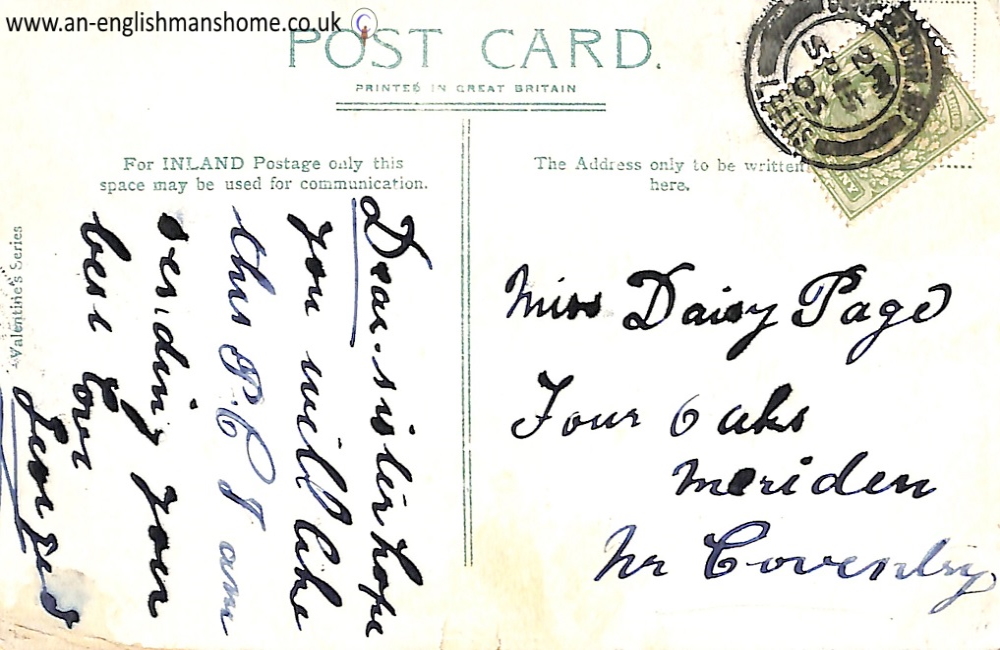 www.an-englishmanshome.co.uk ©
POST CARD.
PRINTED IN GREAT BRITAIN
For INLAND Postage only this
space may be used for communication.
The Address only to be written
here.
Valentine's Series
2 PM
SP 15
05
LEEDS
Dear sister hope
you will like
this P.C I am
sending your
best love
Miss Daisy Page
Four Oaks
Meriden
Nr Coventry